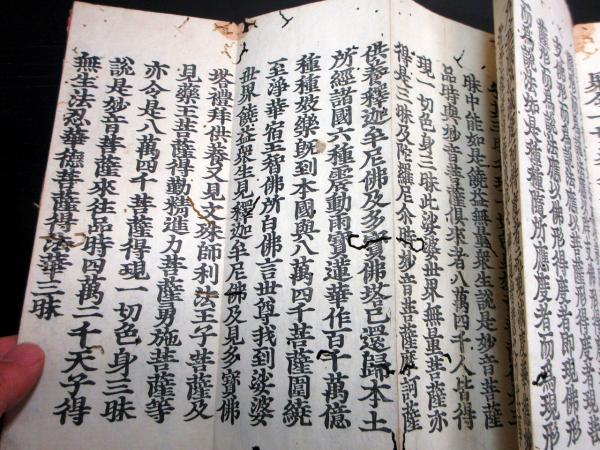 而是說法如是種種隨所應度者而爲現形
昧中能如是饒益無量衆生說是妙音菩薩
品時與妙音菩薩俱來者八萬四千人皆得
現一切色身三昧此娑婆世界無量菩薩亦
得是三昧及陀羅尼尒時妙音菩薩摩訶薩
供養釋迦牟尼佛及多寶佛塔已還歸本土
所經諸國六種震動雨寶蓮華作百千萬億
種種妓樂旣到本國與八萬四千菩薩圍繞
至淨華宿王智佛所白佛言世尊我到娑婆
世界饒益衆生見釋迦牟尼佛及見多寶佛
塔禮拜供養又見文殊師利法王子菩薩及
見藥王菩薩得勤精進力菩薩勇施菩薩等
亦令是八萬四千菩薩得現一切色身三昧
說是妙音菩薩來往品時四萬二千天子得
無生法忍華德菩薩得法華三昧